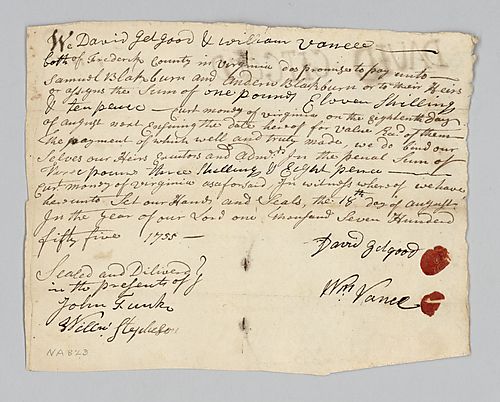 We David Gelgood & William Vance
both of Frederick County in Virginia do promise to pay unto
Samuel Blakburn and Andrew Blackburn or to their Heirs
or assigns the Sum of one pound, Eleven Shilling
& ten pence curt money of virginia on the Eighteenth day
of august next Ensuing the date hereof for Value Recd of them
the payment of which well and truly made, we do bind our
Selves our Heirs Executors and Admrs In the penal Sum of
three pound three Shilling & Eight pence
curt money of virginia as aforesaid In witness whereof we have
hereunto Set our Hands and Seals, the 18th day of august
In the year of our Lord one thousand Seven Hundred
fifty five 1755
David Gelgood
Sealed and Dilivery
in the presents of
John Funk
Wm Vance
Stephenson
NA 823